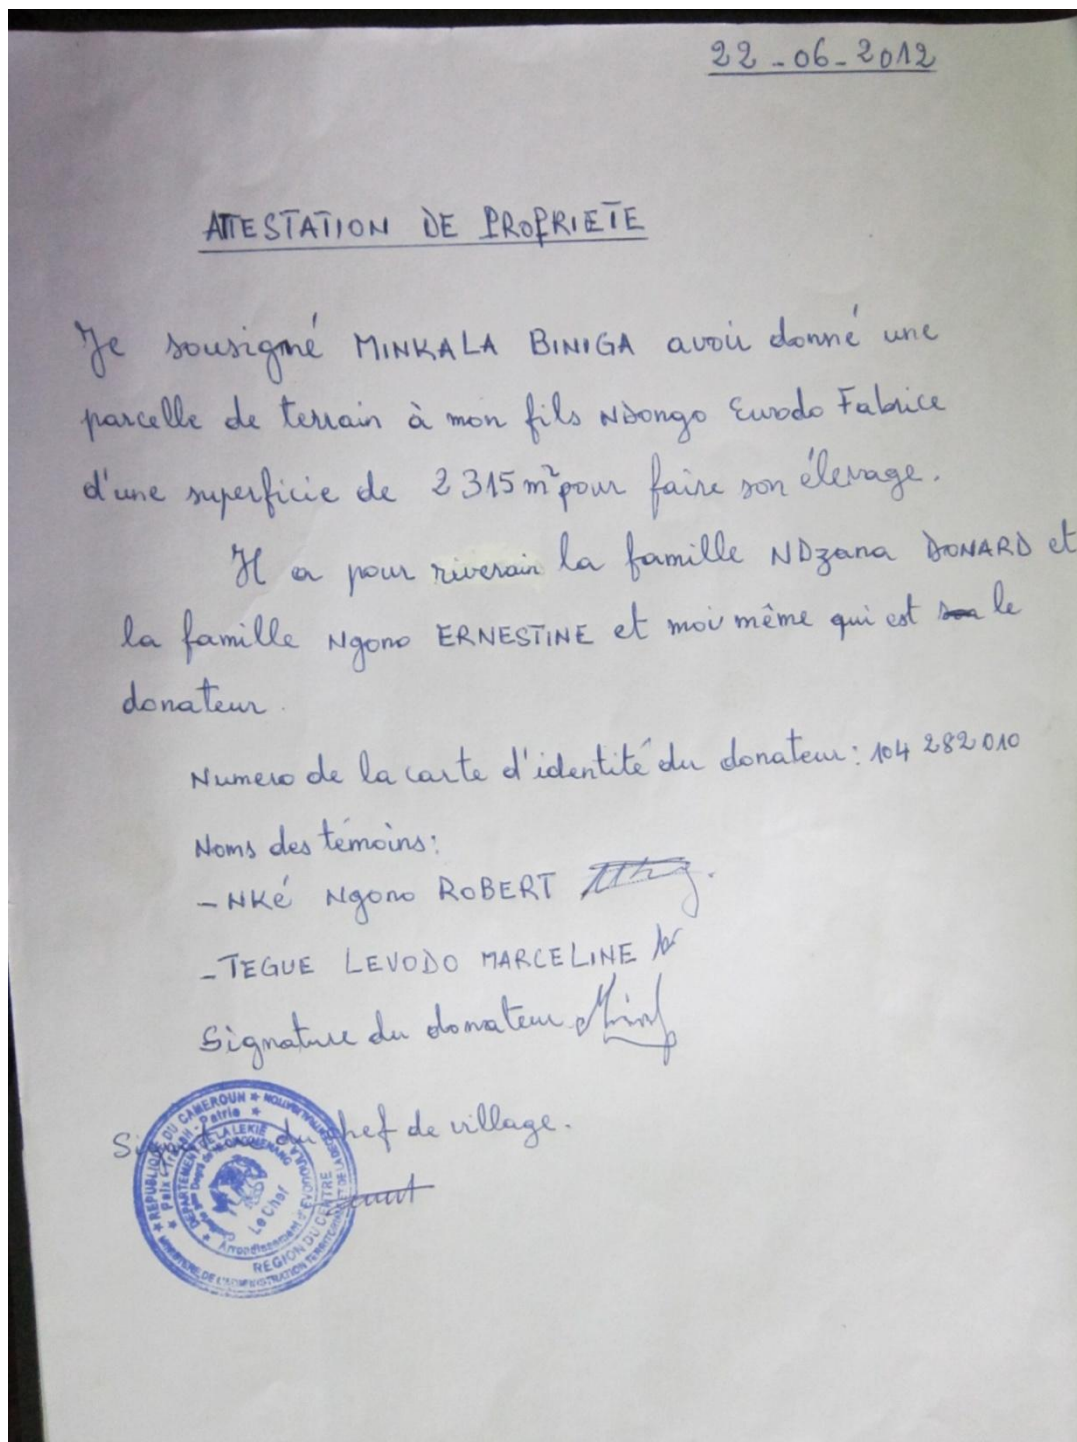 22-06-2012
ATTESTATION DE PROPRIETE
Je sousigné MINKALA BINIGA avoir donné une
parcelle de terrain à mon fils NDongo Ewodo Fabrice
d'une superficie de 2315 m² pour faire son élevage.
Il a pour riverain la famille NDzana DONARD et
la famille Ngono ERNESTINE et moi même qui est le
donateur.
Numero de la carte d'identité du donateur : 104 282 010
Noms des témoins :
- NKé Ngono ROBERT
- TEGUE LEVODO MARCELINE
Signature du donateur
Signature du chef de village.
REPUBLIQUE DU CAMEROUN
Paix - Travail - Patrie
DEPARTEMENT DE LA LEKIE
Le Chef
Arrondissement d'EVODOULA
REGION DU CENTRE
MINISTERE DE L'ADMINISTRATION TERRITORIALE ET DE LA DECENTRALISATION